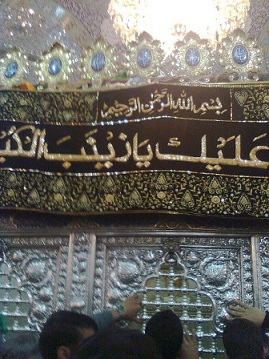 بسم الله الرحمن الرحيم
عليك يا زينب الكب